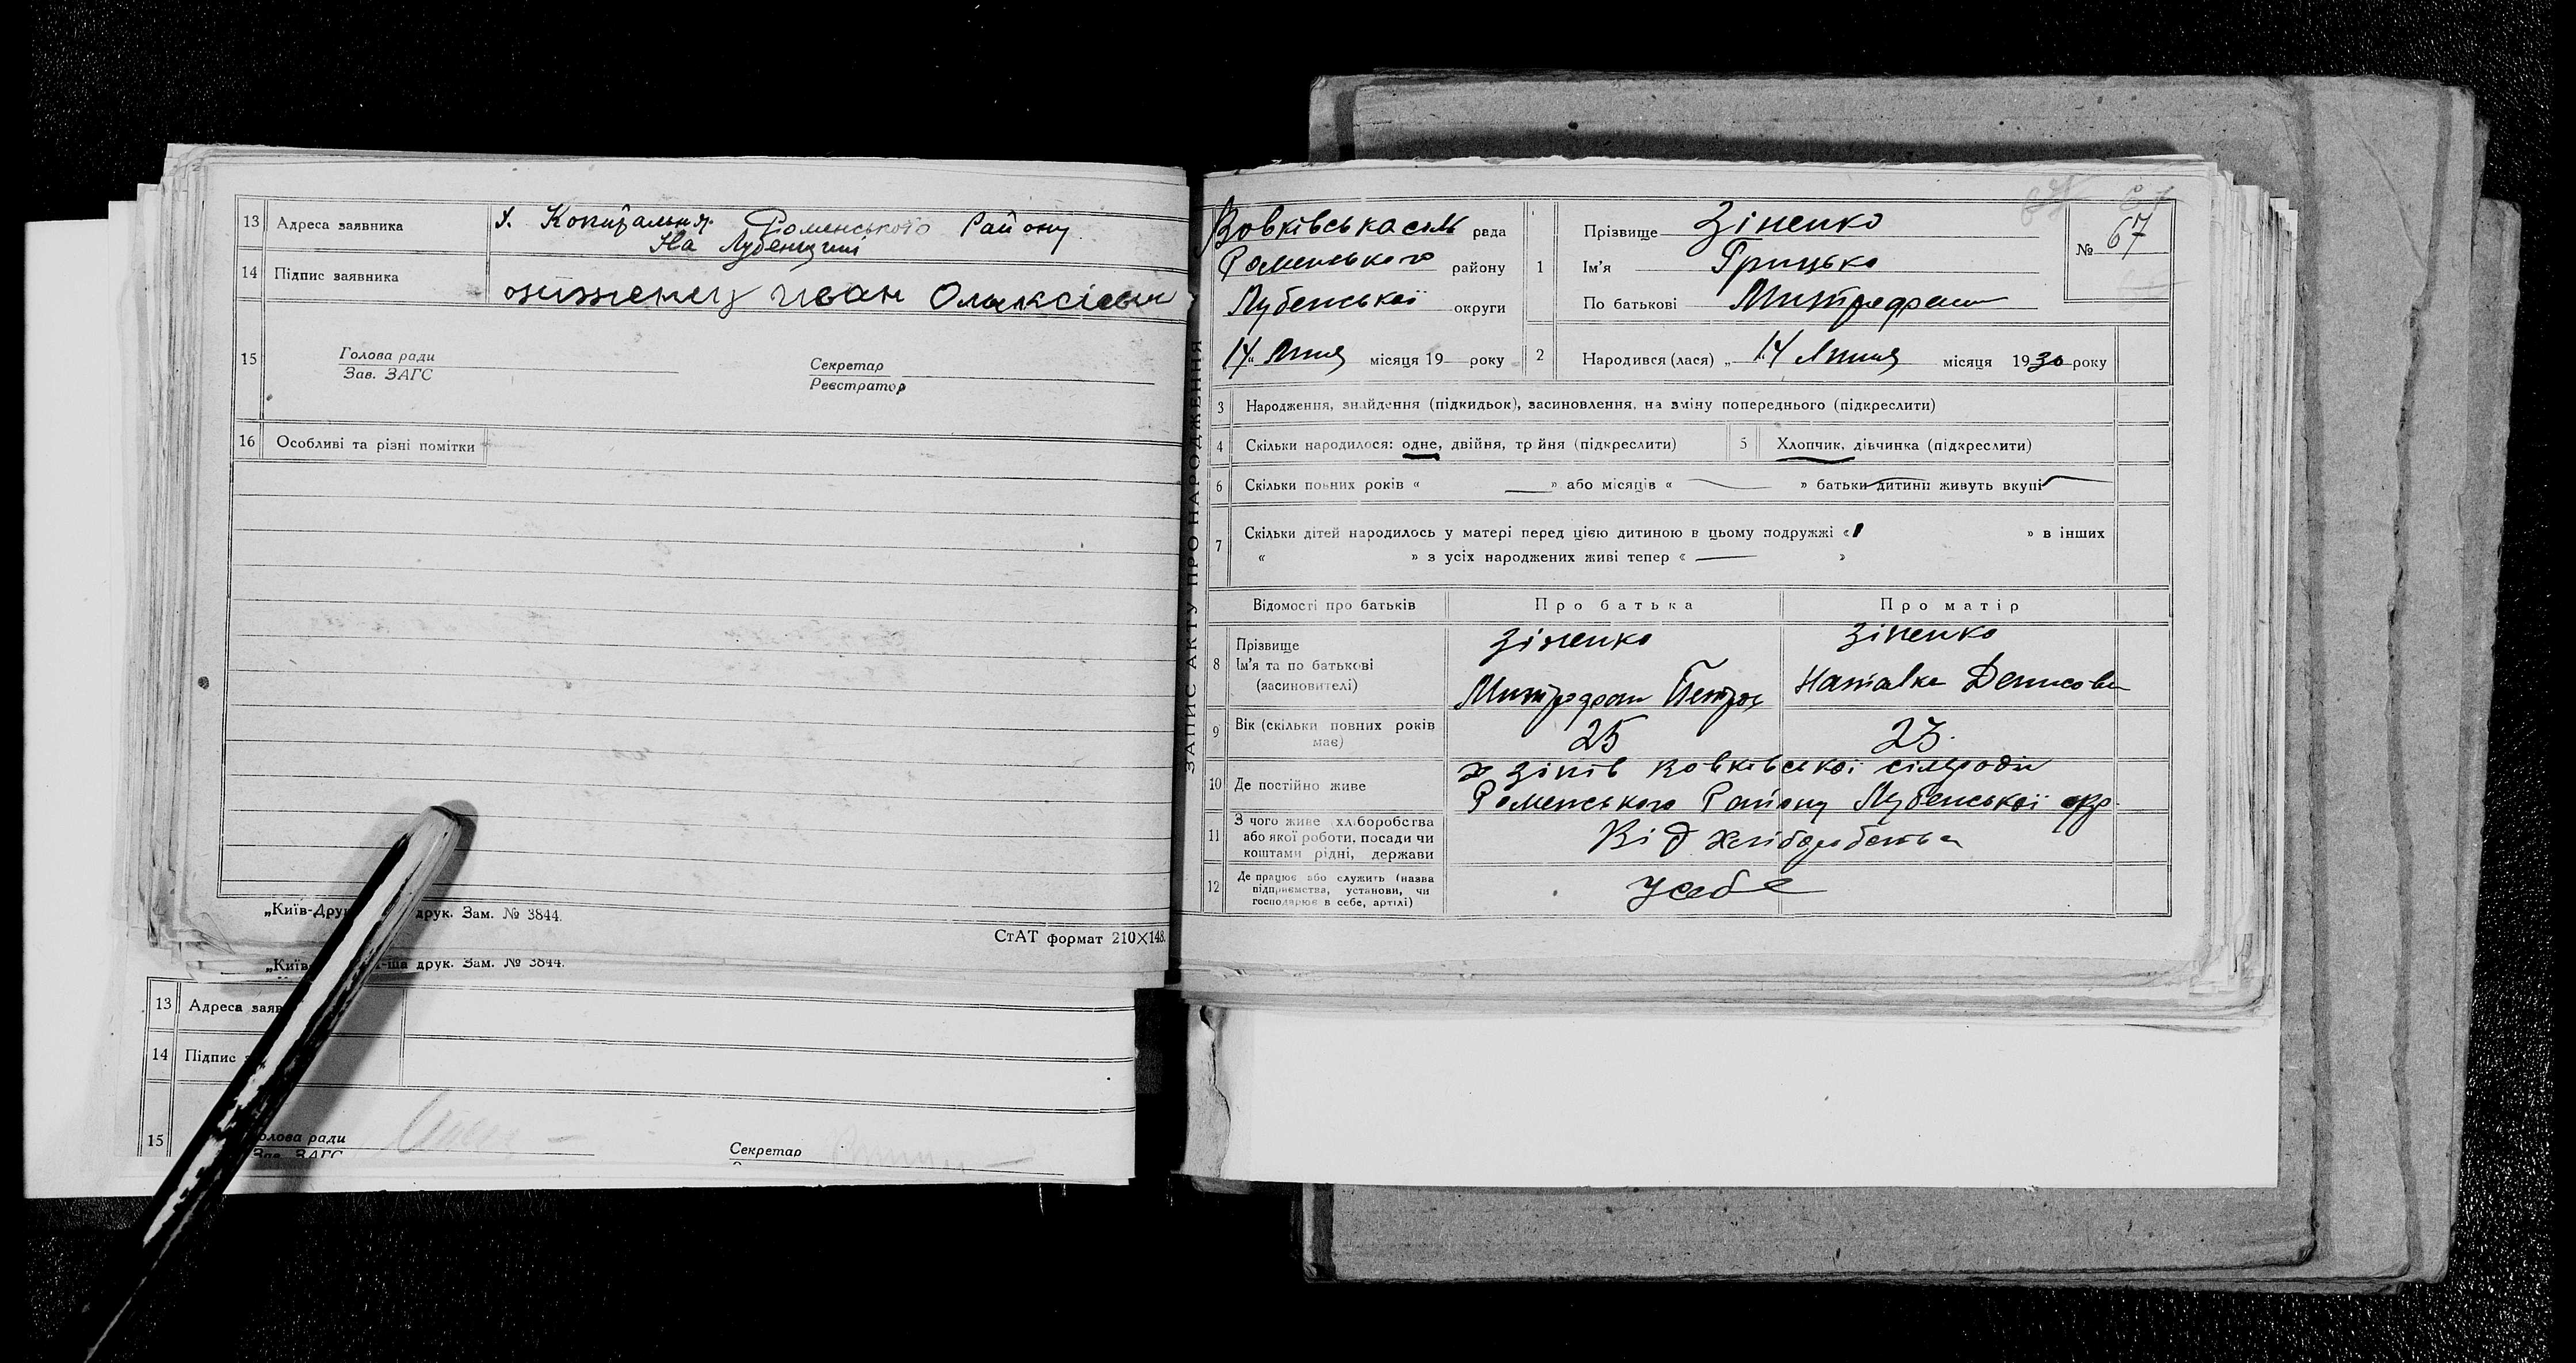 13 Адреса заявника У. Копитальня Роменського Району
На Лубенщині
14 Підпис заявника Иван Олексієвич
15 Голова ради
Зав. ЗАГС
Секретар
Реєстратор
16 Особливі та різні помітки
„Київ-Друк друк. Зам. № 3844.
СтАТ формат 210×148.
„Київ -ша друк. Зам. № 3844.
13 Адреса заяв
14 Підпис з
15 олова ради
Зав. ЗАГС
Секретар
ЗАПИС АКТУ ПРО НАРОДЖЕННЯ
Вовківська сіль рада
Роменського району
Лубенської округи
14 Липня місяця 19 року
№ 67
1 Прізвище Зіненко
Ім'я Грицько
По батькові Митрофан
2 Народився (лася) „ 14 Липня місяця 1930 року
3 Народження, знайдення (підкидьок), засиновлення, на зміну попереднього (підкреслити)
4 Скільки народилося: одне, двійня, трійня (підкреслити) 5 Хлопчик, дівчинка (підкреслити)
6 Скільки повних років « » або місяців « » батьки дитини живуть вкупі
7 Скільки дітей народилось у матері перед цією дитиною в цьому подружжі «1 » в інших
« » з усіх народжених живі тепер « »
Відомості про батьків Про батька Про матір
8 Прізвище Зіненко Зіненко
Ім'я та по батькові
(засиновителі) Митрофан Петров Наталка Денисовн
9 Вік (скільки повних років має) 25 23.
10 Де постійно живе х Зінів Вовківської сільради
Роменського Району Лубенської окр.
11 З чого живе (хліборобства
або якої роботи, посади чи
коштами рідні, держави Від хліборобства
12 Де працює або служить (назва
підприємства, установи, чи
господарює в себе, артілі) У себе